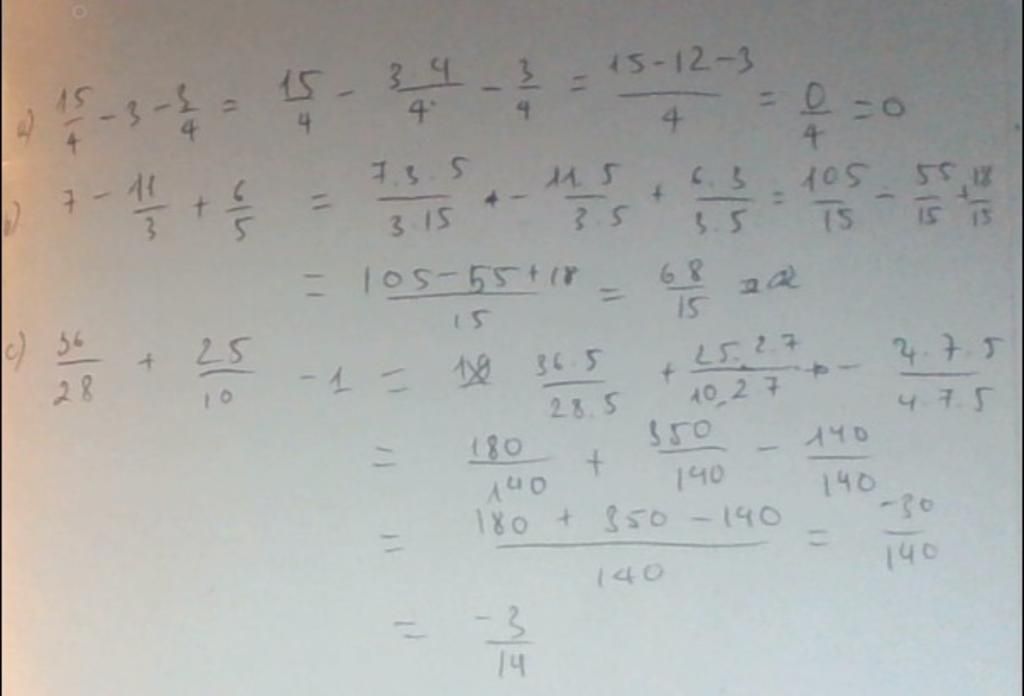 a) 15/4 - 3 - 3/4 = 15/4 - 3.4/4 - 3/4 = 15-12-3/4 = 0/4 = 0
b) 7 - 11/3 + 6/5 = 7.3.5/3.15 - 11.5/3.5 + 6.3/3.5 = 105/15 - 55/15 + 18/15
= 105-55+18/15 = 68/15
c) 36/28 + 25/10 - 1 = 36.5/28.5 + 25.2.7/10.27 - 4.7.5/4.7.5
= 180/140 + 350/140 - 140/140
= 180 + 350 - 140/140 = -30/140
= -3/14